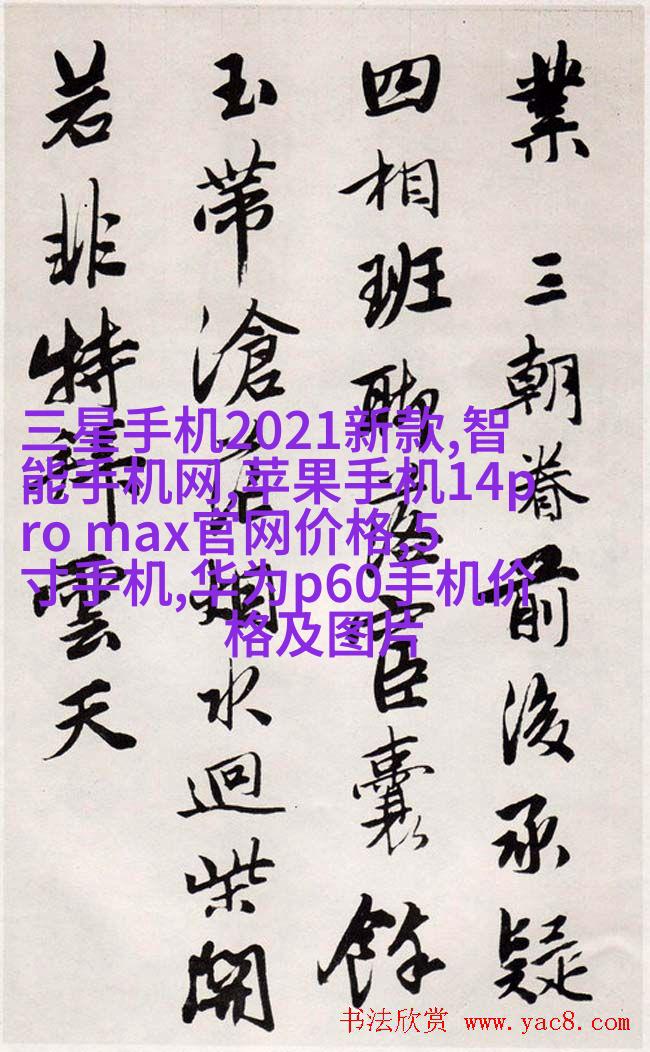 業 三朝眷前後承疑
四相班聯臣囊餘
玉帶滄水迴柴開
若非特雲天
三星手机2021新款,智
能手机网,苹果手机14p
ro max官网价格,5
寸手机,华为p60手机价
格及图片
书法欣赏 www.yac8.com